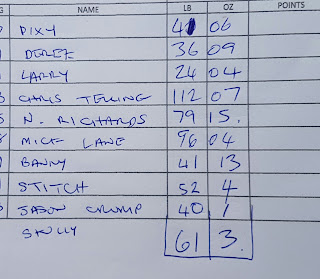 G NAME LB OZ POINTS
DIXY 41 06
DEREK 36 09
LARRY 24 04
CHRIS TELLING 112 07
N. RICHARDS 79 15.
MICK LANE 96 04
BANNY 41 13
STITCH 52 4
JASON CRUMP 40 1
SKULLY 61 3.